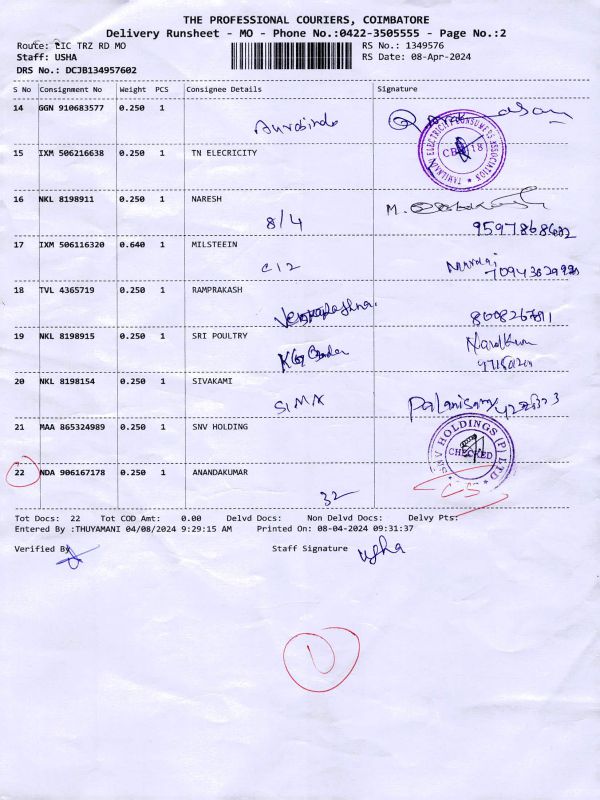 THE PROFESSIONAL COURIERS, COIMBATORE
Delivery Runsheet - MO - Phone No.:0422-3505555 - Page No.:2
Route: LIC TRZ RD MO RS No.: 1349576
Staff: USHA RS Date: 08-Apr-2024
DRS No.: DCJB134957602
S No Consignment No Weight PCS Consignee Details Signature
14 GGN 910683577 0.250 1
Aurobindo
15 IXM 506216638 0.250 1 TN ELECRICITY
TAMILNADU ELECTRICITY CONSUMERS ASSOCIATION
16 NKL 8198911 0.250 1 NARESH M.
8/4
17 IXM 506116320 0.640 1 MILSTEEIN
C12
18 TVL 4365719 0.250 1 RAMPRAKASH
19 NKL 8198915 0.250 1 SRI POULTRY
20 NKL 8198154 0.250 1 SIVAKAMI
SIMA Palanisamy
21 MAA 865324989 0.250 1 SNV HOLDING
SNV HOLDINGS (P) LTD
CHECKED
22 NDA 906167178 0.250 1 ANANDAKUMAR
32 CS
Tot Docs: 22 Tot COD Amt: 0.00 Delvd Docs: Non Delvd Docs: Delvy Pts:
Entered By :THUYAMANI 04/08/2024 9:29:15 AM Printed On: 08-04-2024 09:31:37
Verified By Staff Signature usha